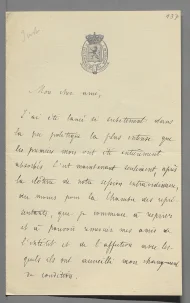 Mon cher ami,
J'ai été lancé si subitement dans
la vie politique la plus intense que
les premiers mois ont été entièrement
absorbés. C'est maintenant seulement, après
la clôture de notre session extraordinaire,
des mises pour la Chambre des repré-
sentants, que je commence à respirer
et à pouvoir remercier mes amis de
l'intérêt et de l'affection avec les-
quels ils ont accueilli mon changement
de condition.